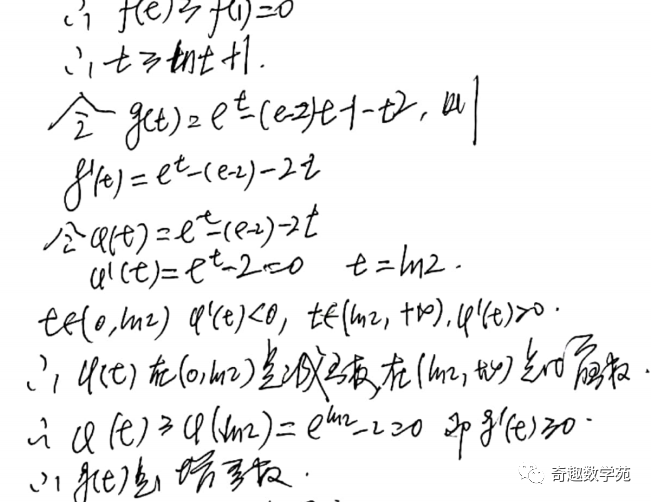 ∴ f(t)≥f(1)=0
∴ t≥lnt+1.
令 g(t)=e^t-(e-2)t-1-t^2, 则
g'(t)=e^t-(e-2)-2t
令 φ(t)=e^t-(e-2)-2t
φ'(t)=e^t-2=0 t=ln2.
t∈(0,ln2) φ'(t)<0, t∈(ln2,+∞), φ'(t)>0.
∴ φ(t)在(0,ln2)是减函数,在(ln2,+∞)是增函数.
∴ φ(t)≥φ(ln2)=e^ln2-2=0 即g'(t)≥0.
∴ g(t)是增函数.
奇趣数学苑